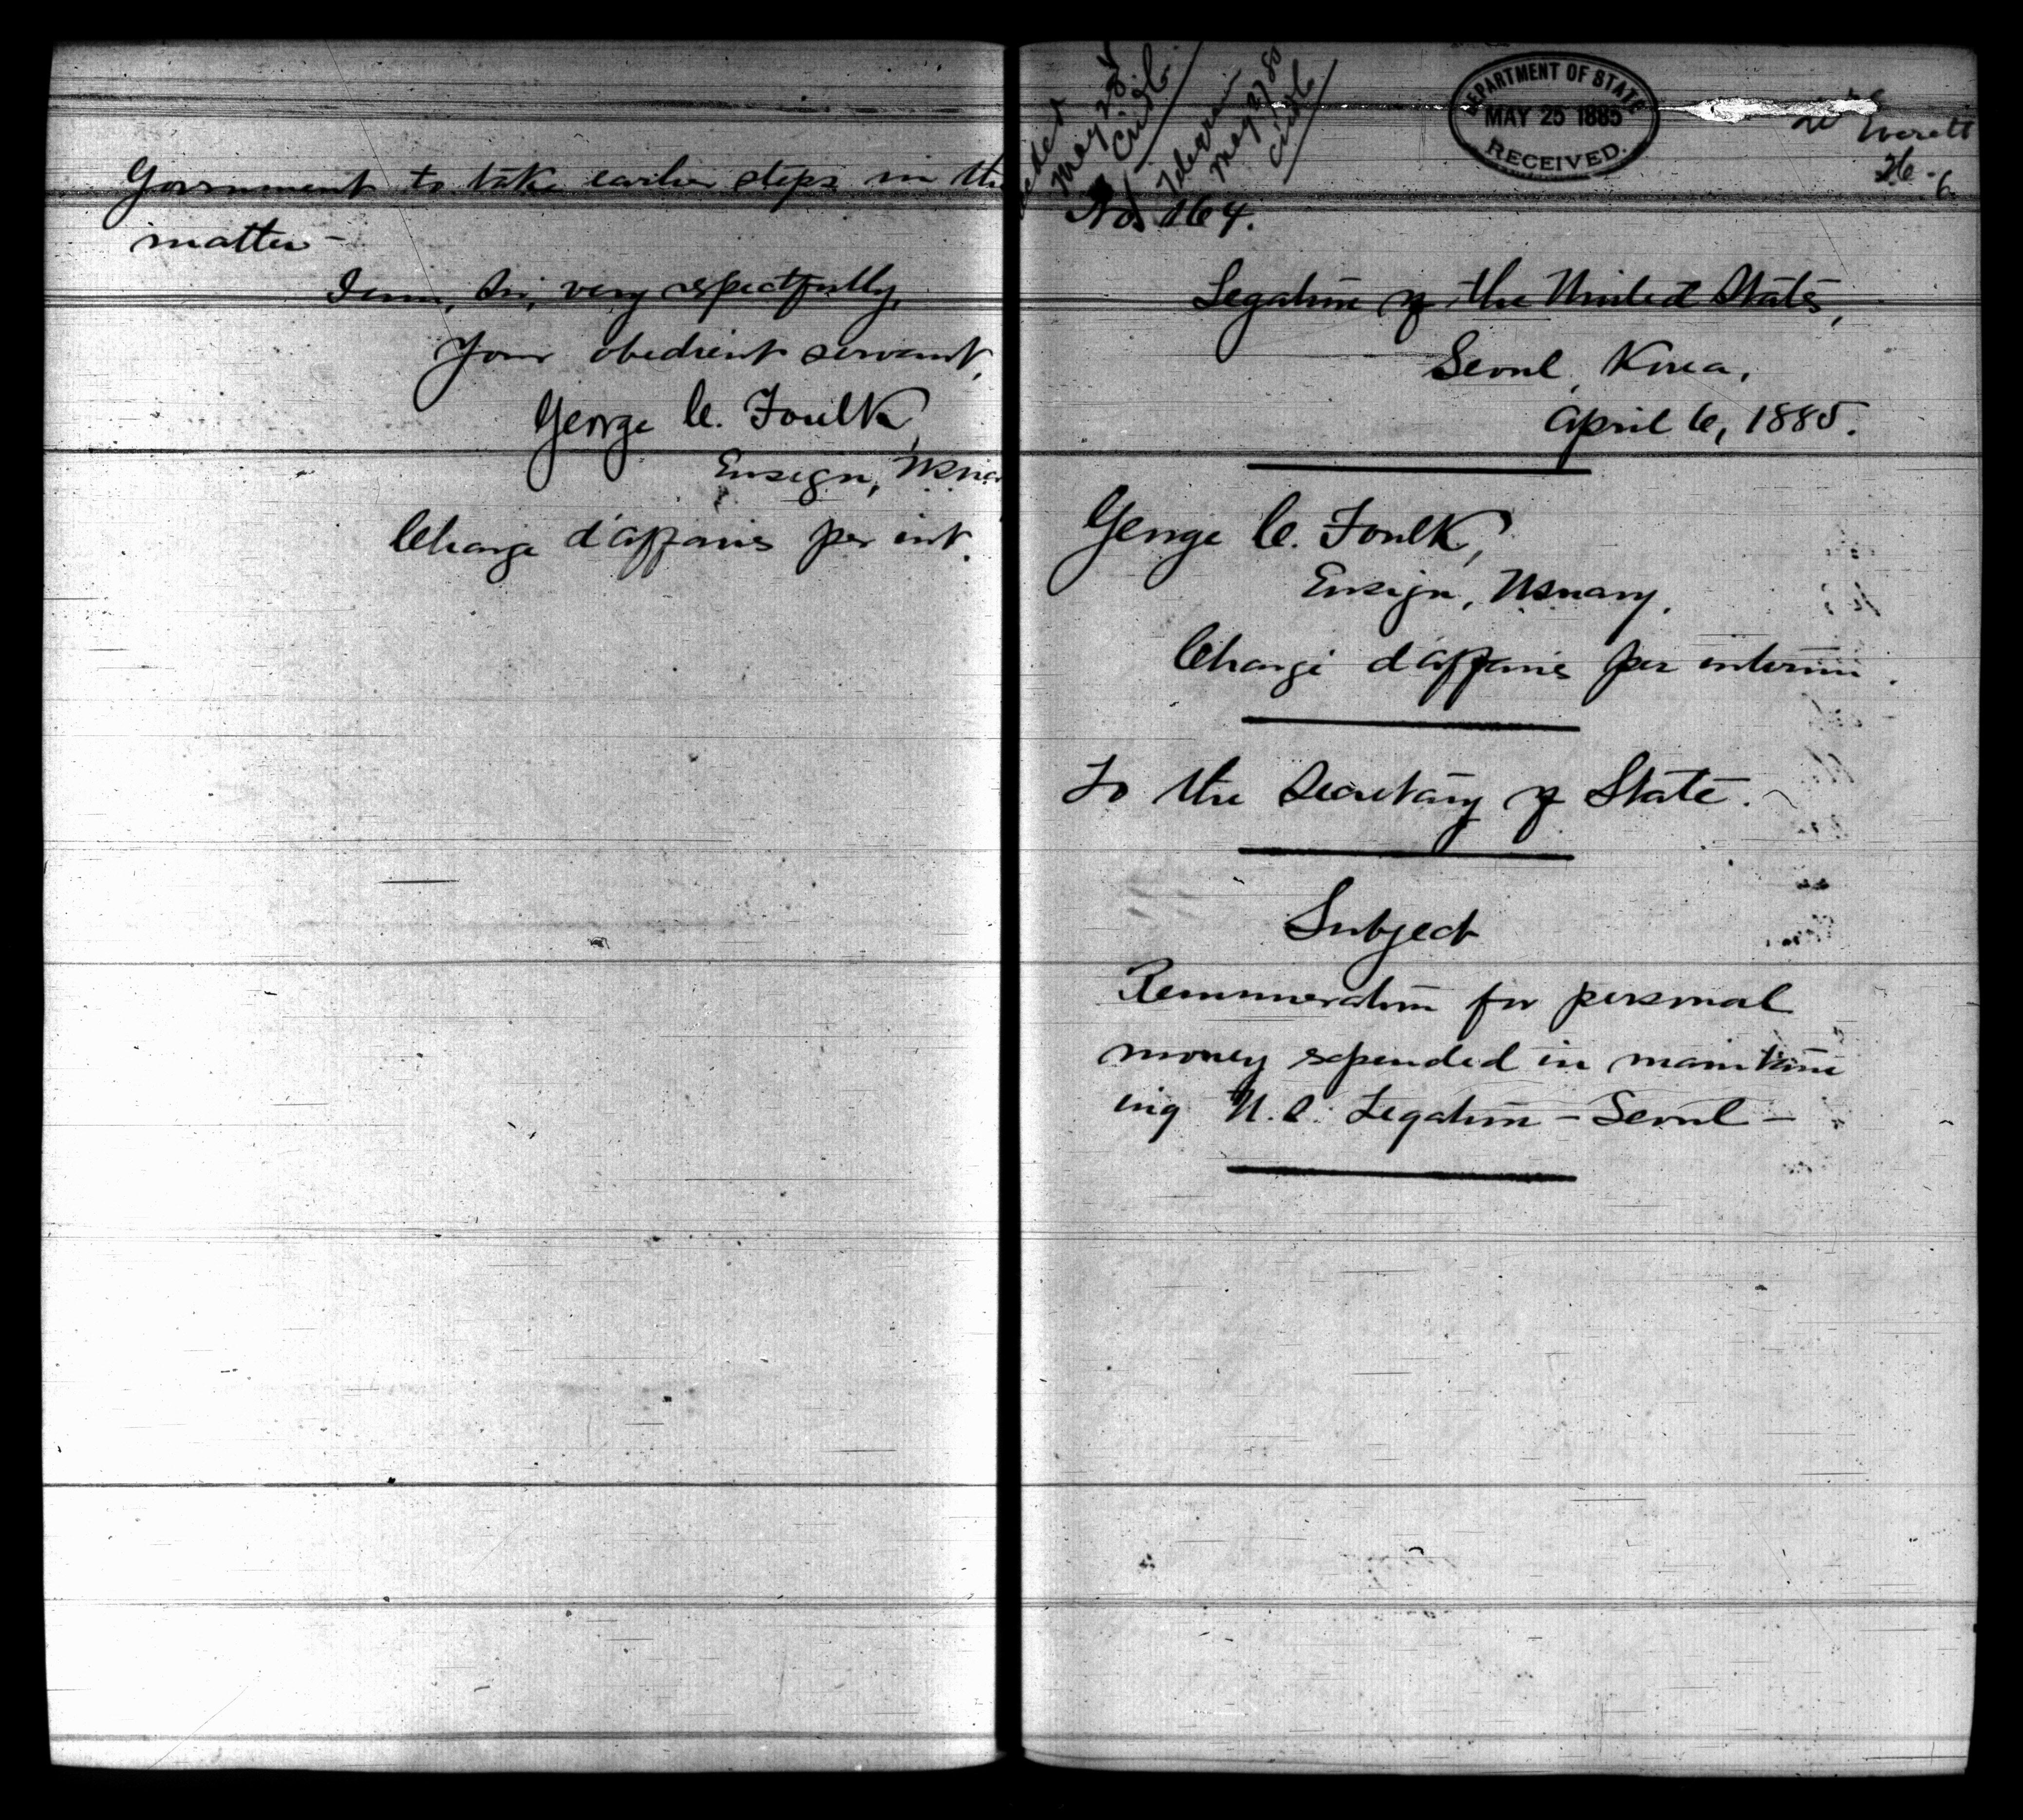 Government to take earlier steps in the
matter -
I am, Sir, very respectfully,
Your obedient servant,
George C. Foulk,
Ensign, US
Charge d'affaires per int.
May 28
Civil
Telegram
May 27 85
DEPARTMENT OF STATE
MAY 25 1885
RECEIVED.
Everett
No. 164.
Legation of the United States,
Seoul, Korea,
April 6, 1885.
George C. Foulk,
Ensign, USnavy.
Chargé d'affaires per interim.
To the Secretary of State.
Subject
Remuneration for personal
money expended in maintain
ing U.S. Legation - Seoul -